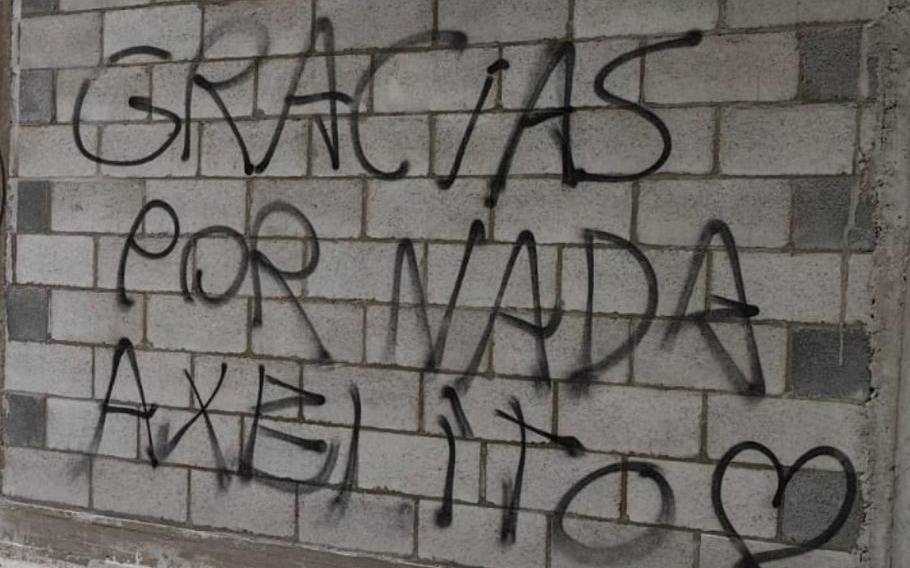 GRACIAS
POR NADA
AXELITO